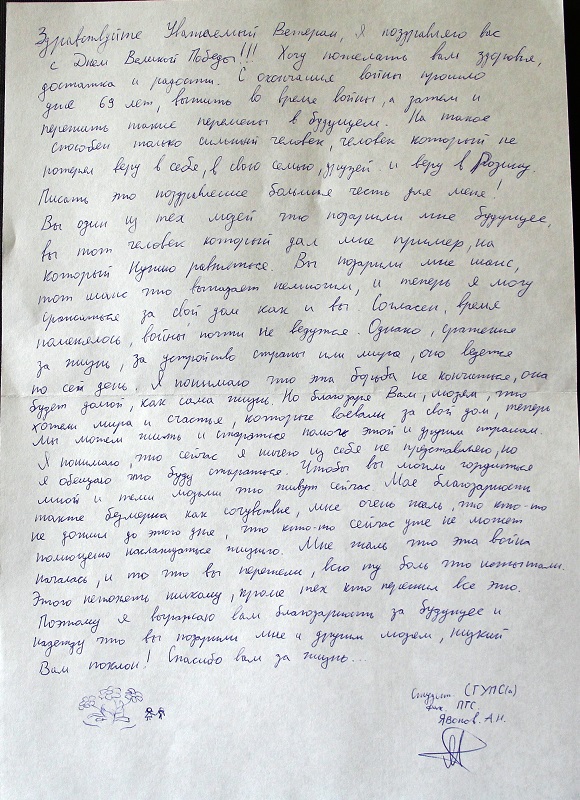 Здравствуйте Уважаемый Ветеран, я поздравляю вас
с Днем Великой Победы!!! Хочу пожелать вам здоровья,
достатка и радости. С окончания войны прошло
уже 69 лет, выжить во время войны, а затем и
пережить такие перемены в будущем. На такое
способен только сильный человек, человек который не
потерял веру в себя, в свою семью, друзей и веру в Родину.
Писать это поздравление большая честь для меня!
Вы один из тех людей что подарили мне будущее,
вы тот человек который дал мне пример, на
который нужно равняться. Вы подарили мне шанс,
тот шанс что выпадает немногим, и теперь я могу
сражаться за свой дом как и вы. Согласен, время
поменялось, войны почти не ведутся. Однако, сражения
за жизнь, за устройство страны или мира, оно ведется
по сей день. Я понимаю что эта борьба не кончиться, она
будет долгой, как сама жизнь. Но благодаря Вам, людям, что
хотели мира и счастья, которые воевали за свой дом, теперь
Мы можем жить и стараться помочь этой и другим странам.
Я понимаю, что сейчас я ничего из себя не представляю, но
я обещаю что буду стараться. Чтобы вы могли гордиться
мной и теми людьми что живут сейчас. Мае благодарности
также безмерна как сочувствие, мне очень жаль, что кто-то
не дошил до этого дня, что кто-то сейчас уже не может
полноценно наслаждаться жизнью. Мне жаль что эта война
началась, и то что вы пережели, всю ту боль что испытали.
Этого непонять никому, кроме тех кто пережил все это.
Поэтому я выражаю вам благодарности за будущее и
надежду что вы подарили мне и другим людям, низкий
Вам поклон! Спасибо вам за жизнь...
Студент (ТГУПСа)
фак. ПГС.
Явопов. А.Н.